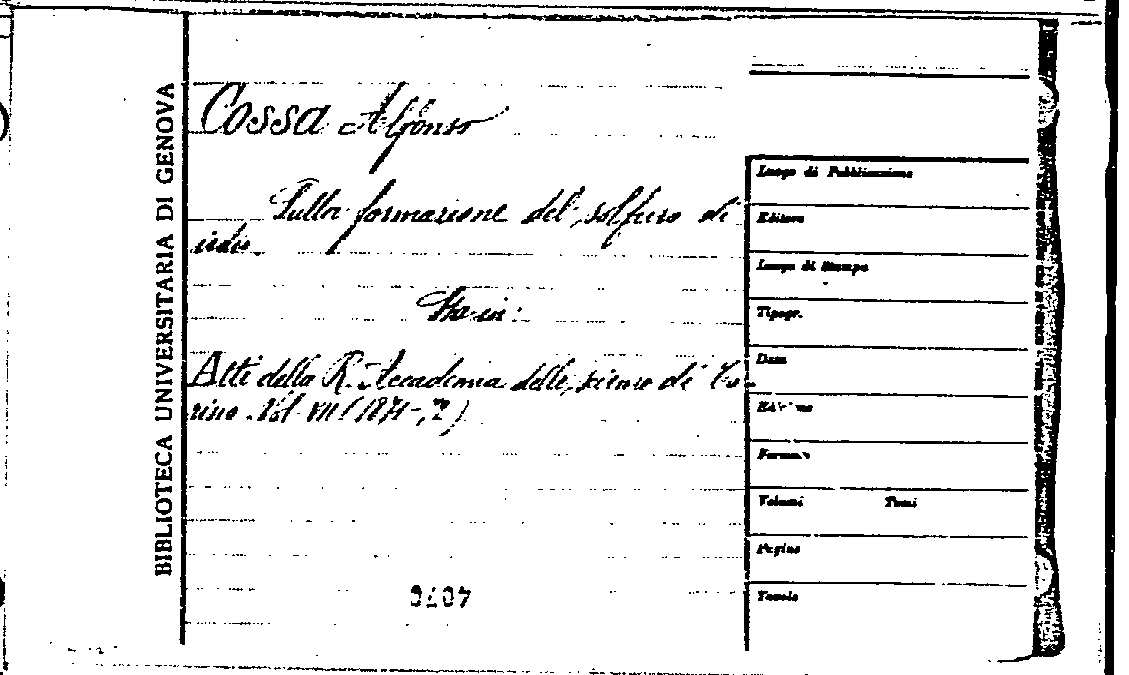 BIBLIOTECA UNIVERSITARIA DI GENOVA
Cossa Alfonso
Sulla formazione del solfuro di
iodio.
Sta in:
Atti della R. Accademia delle scienze di To-
rino. Vol. VII (1871-72)
Luogo di Pubblicazione
Editore
Luogo di Stampa
Tipogr.
Data
Edizione
Formato
Volumi Tomi
Pagine
Tavole